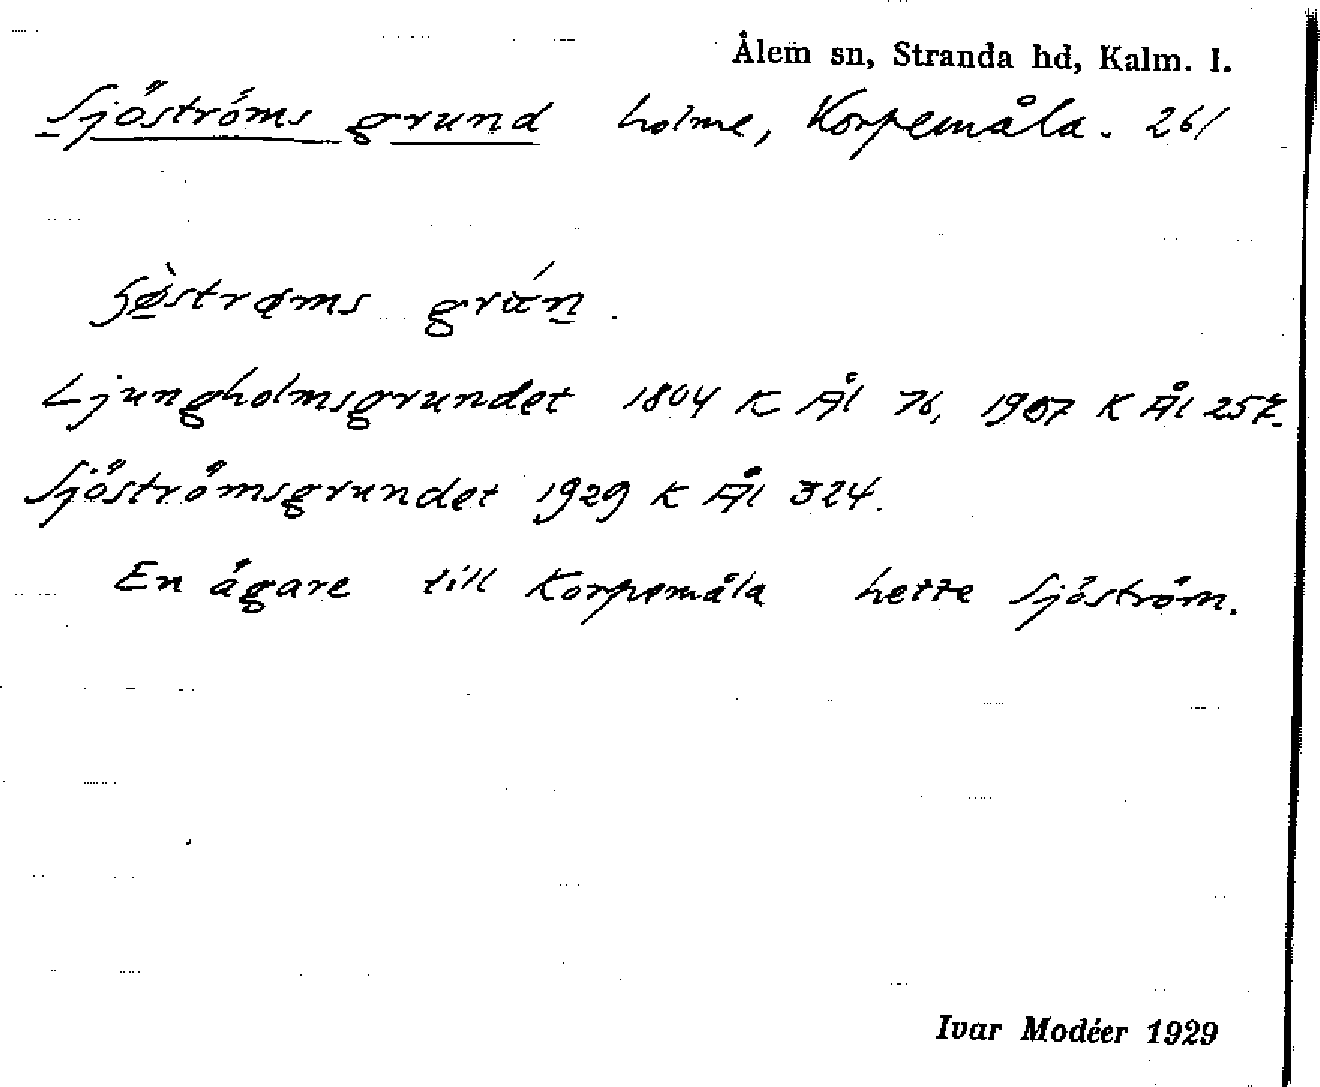 Ålem sn, Stranda hd, Kalm. l.
Sjöströms grund holme, Korpemåla. 261
Ljungholmsgrundet 1804 K Ål 76, 1907 K Ål 257.
Sjöströmsgrundet 1929 K Ål 324.
En ägare till Korpemåla hette Sjöström.
Ivar Modéer 1929